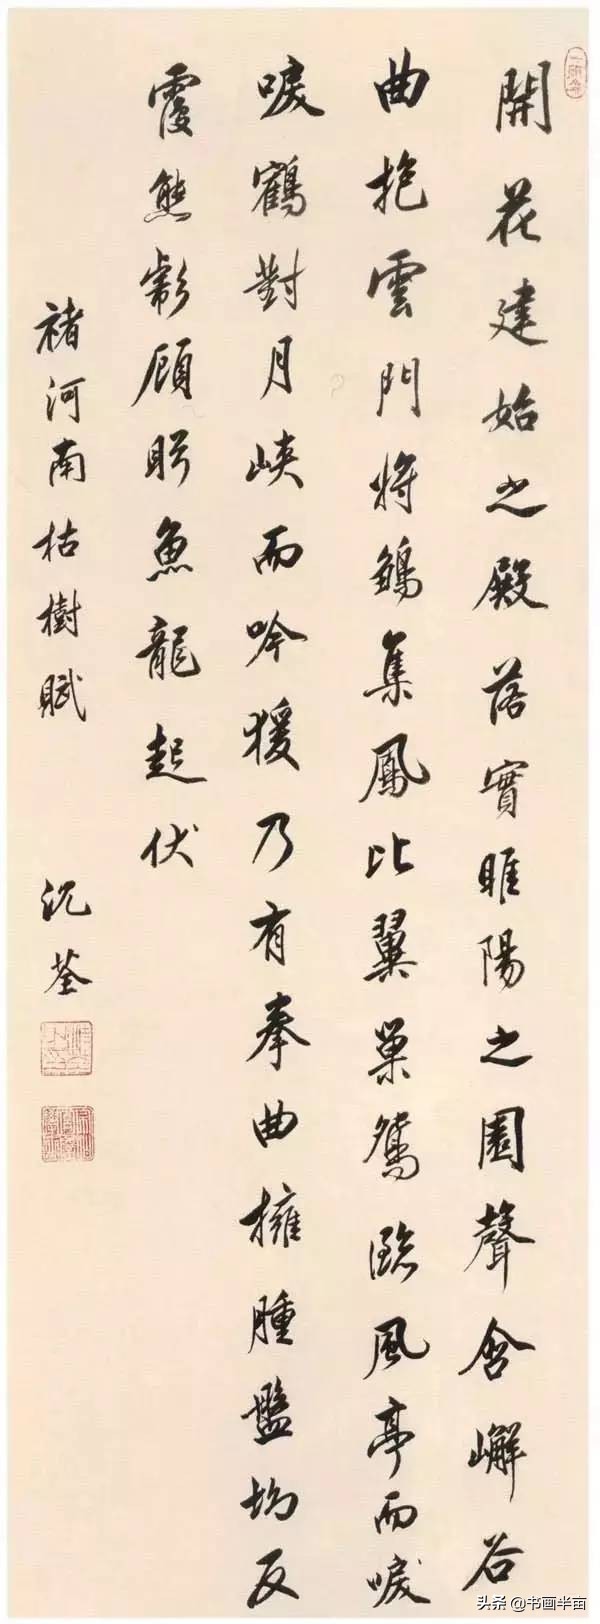 開花建始之殿落實睢陽之園聲含嶰谷
曲抱雲門將鶵集鳳比翼巢鴛臨風亭而唳
唳鶴對月峽而吟猨乃有拳曲擁腫盤坳反
覆熊彪顧盼魚龍起伏
褚河南枯樹賦 沈荃
头条 @书画半亩